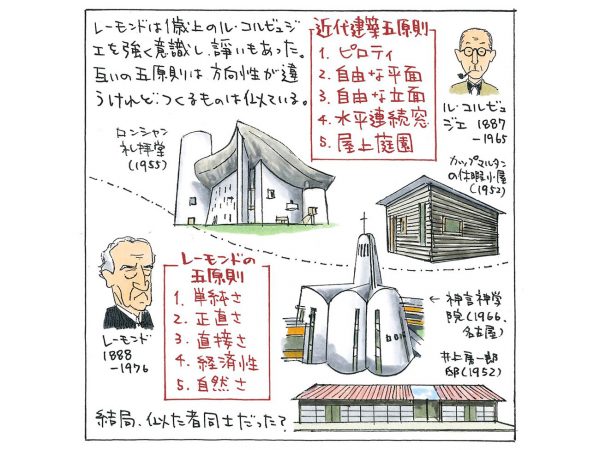 レーモンドは1歳上のル・コルビュジ
エを強く意識し、諍いもあった。
互いの五原則は方向性が違
うけれど、つくるものは似ている。
近代建築五原則
1. ピロティ
2. 自由な平面
3. 自由な立面
4. 水平連続窓
5. 屋上庭園
ル・コルビュ
ジエ 1887
－1965
ロンシャン
礼拝堂
(1955)
カップマルタン
の休暇小屋
(1952)
レーモンド
1888
－1976
レーモンドの
五原則
1. 単純さ
2. 正直さ
3. 直接さ
4. 経済性
5. 自然さ
← 神言神学
院(1966、
名古屋)
井上房一郎
邸(1952)
結局、似た者同士だった?